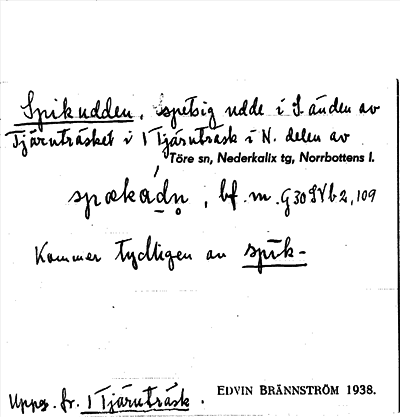 Spikudden, spetsig udde i S änden av
Tjärnträsket i 1 Tjärnträsk i N. delen av
Töre sn, Nederkalix tg, Norrbottens l.
spækádn̥, bf. m.
Kommer tydligen av spík-
Upps. fr. 1 Tjärnträsk.
EDVIN BRÄNNSTRÖM 1938.